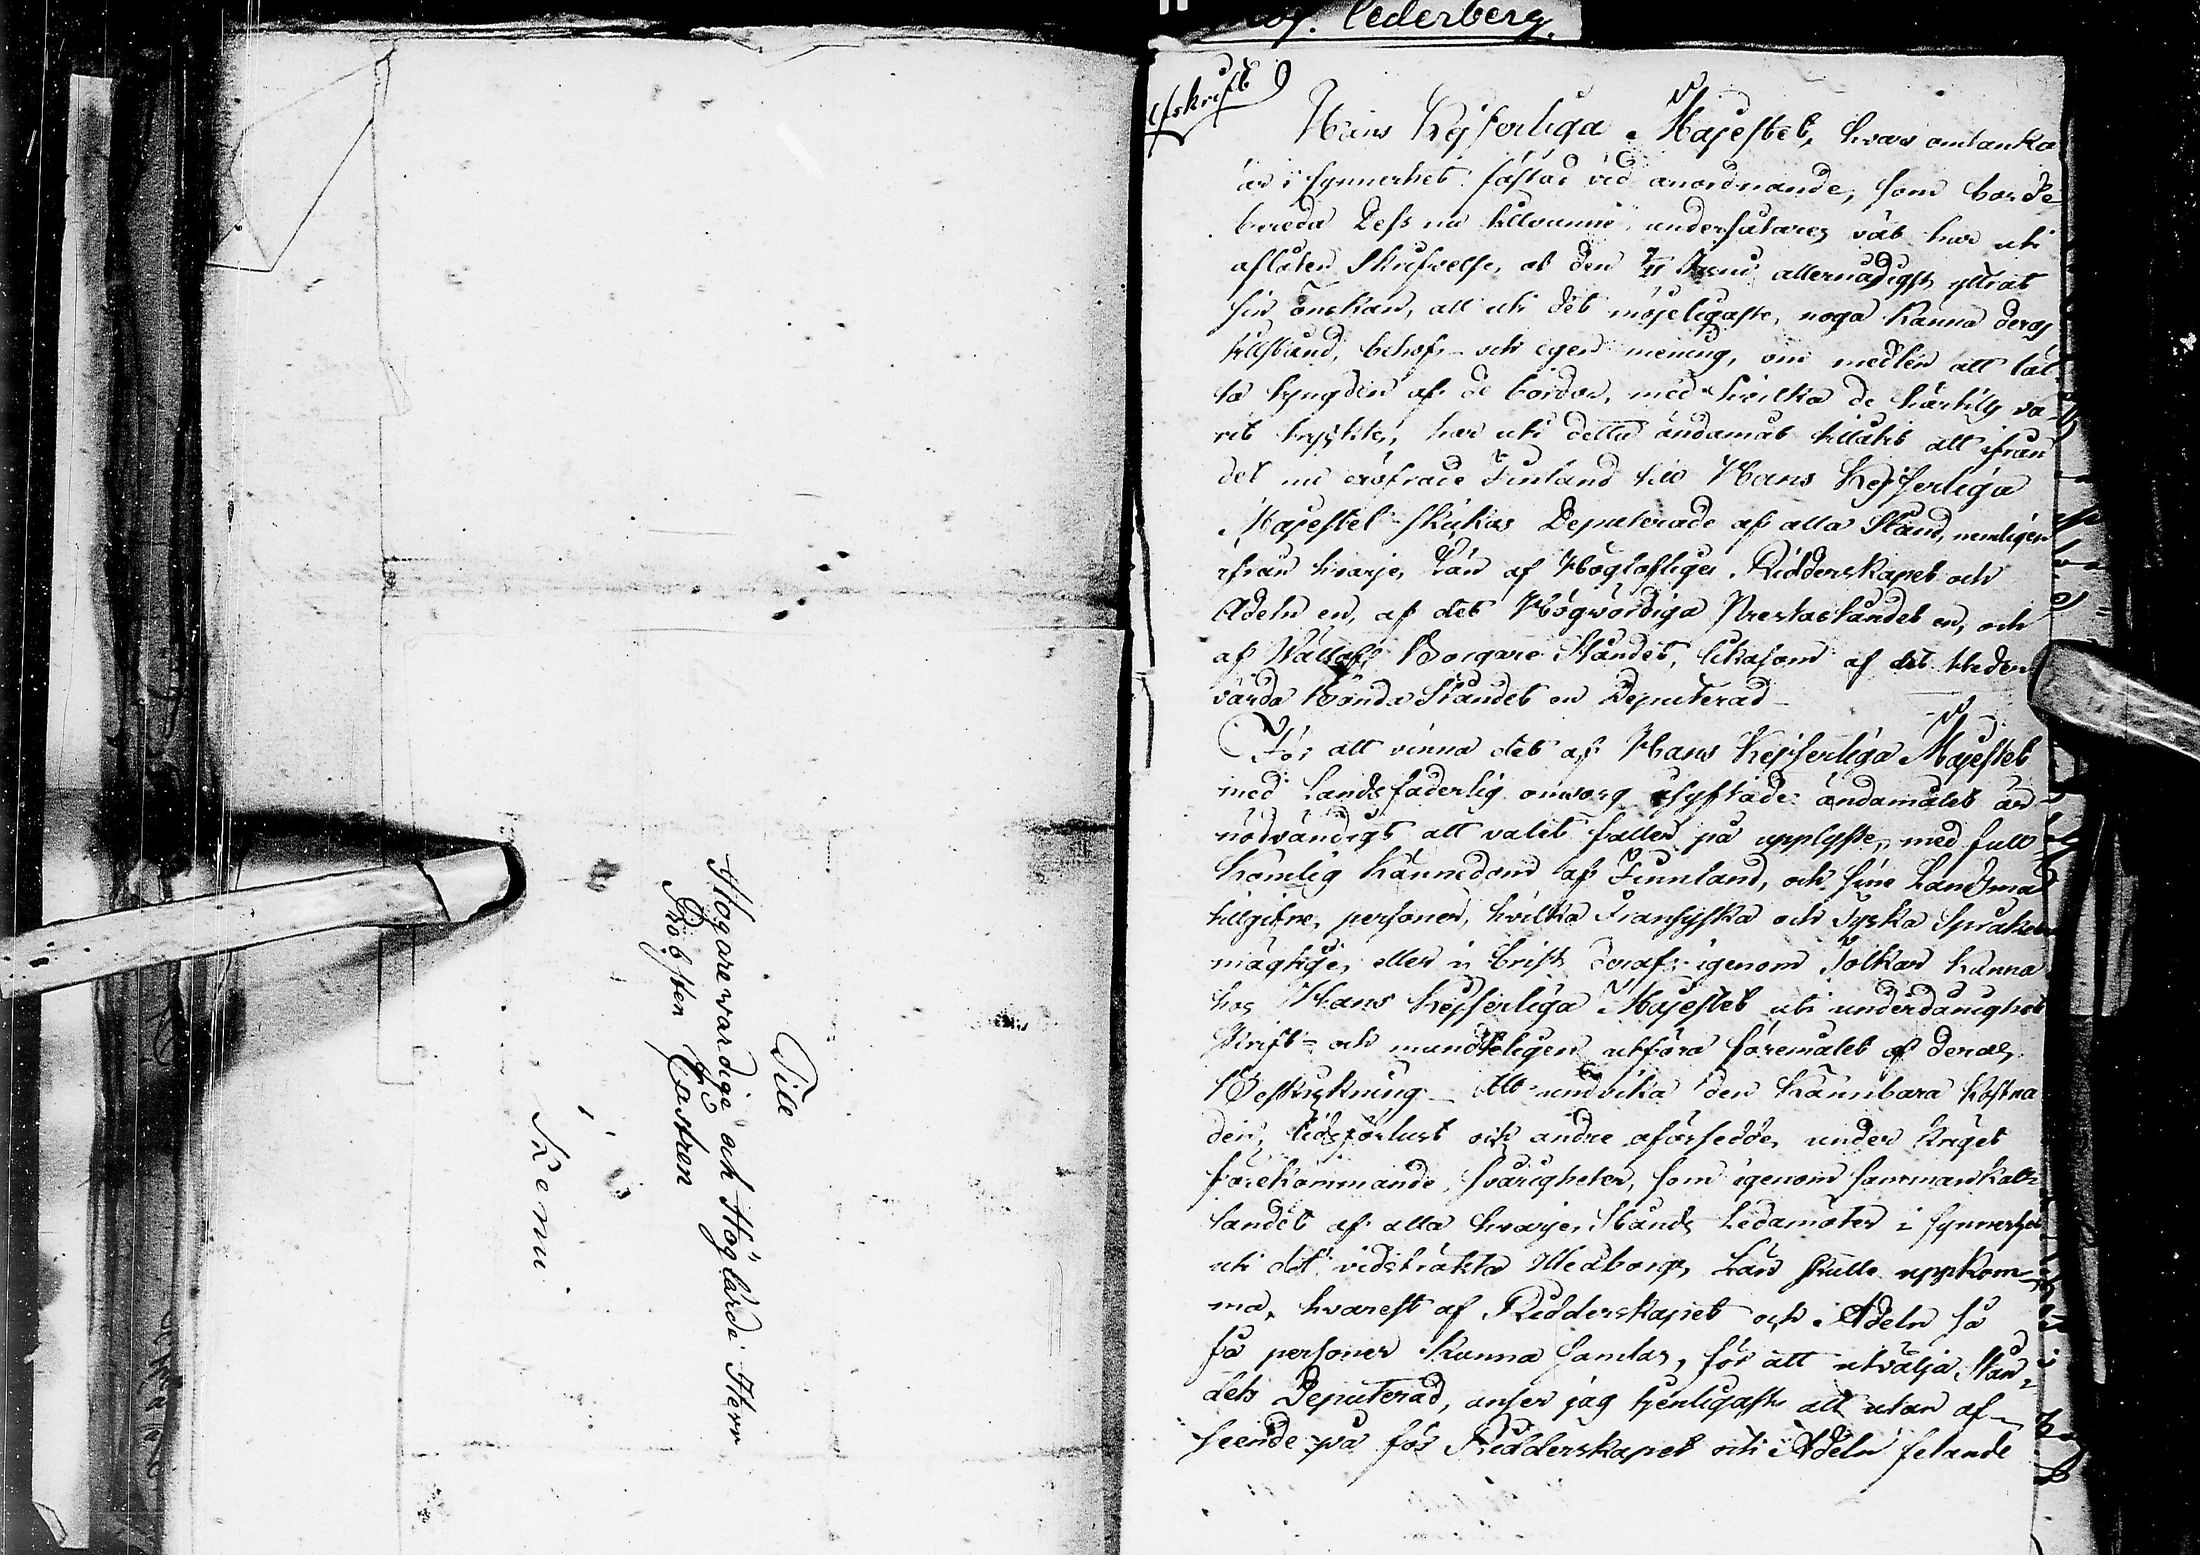 Till
Högarewärdige och Höglärde Herr
Probsten Castren
i
Kemi
Cederberg.
Afskrift
Hans Kejserliga Majestet, hvars omtanka
är i synnerhet fästad vid anordnande, som borde
bereda Dess nu tillvunne undersåtares väl har uti
aflåten Skrifvelse, af den Juni allernådigst yttrat
sin önskan, att uti det möjeligaste, noga kanna deras
tillstånd, behof och egen mening, om medlen att lät
ta tyngden af de bördor, med hvilka de härtills va
rit tryckte, har uti detta ändamål tillåtit att ifrån
det nu eröfrade Finland till Hans Kejserliga
Majestet skickas Deputerade af alla Stånd, nemligen
ifrån hvarje Län af Höglofliga Ridderskapet och
Adeln en, af det Högvördiga Prestaståndet en, och
af Vällofl. Borgare Ståndet, likasom af det Heder
värda Bonde Ståndet en Deputerad
För att vinna det af Hans Kejserliga Majestet
med Landsfaderlig omsorg åsyftade ändamålet är
nödvändigt att valet faller på upplyste, med full
komlig kännedom af Finnland, och sine Landsmän
tillgifne personer, hvilka Fransyska och Tyska Språken
mägtige, eller i brist deraf igenom Tolkar kunna
hos Hans Kejserliga Majestet uti underdånighet
skrift- och mundteligen utföra föremålet af deras
Beskickning Att undvika den kännbara kostna
den, tidsförlust och andre oförsedde, under kriget
förekommande, svårigheter, som igenom sammankal
landet af alla hvarje Stånds Ledamöter i synnerhet
uti det vidsträkta Uleåborgs Län skulle uppkom-
ma, hvarest af Ridderskapet och Adeln så
få personer kunna samlas, för att utvälja Stån-
dets Deputerad, anser jag tjenligast att utan af-
seende på för Ridderskapet och Adeln felande